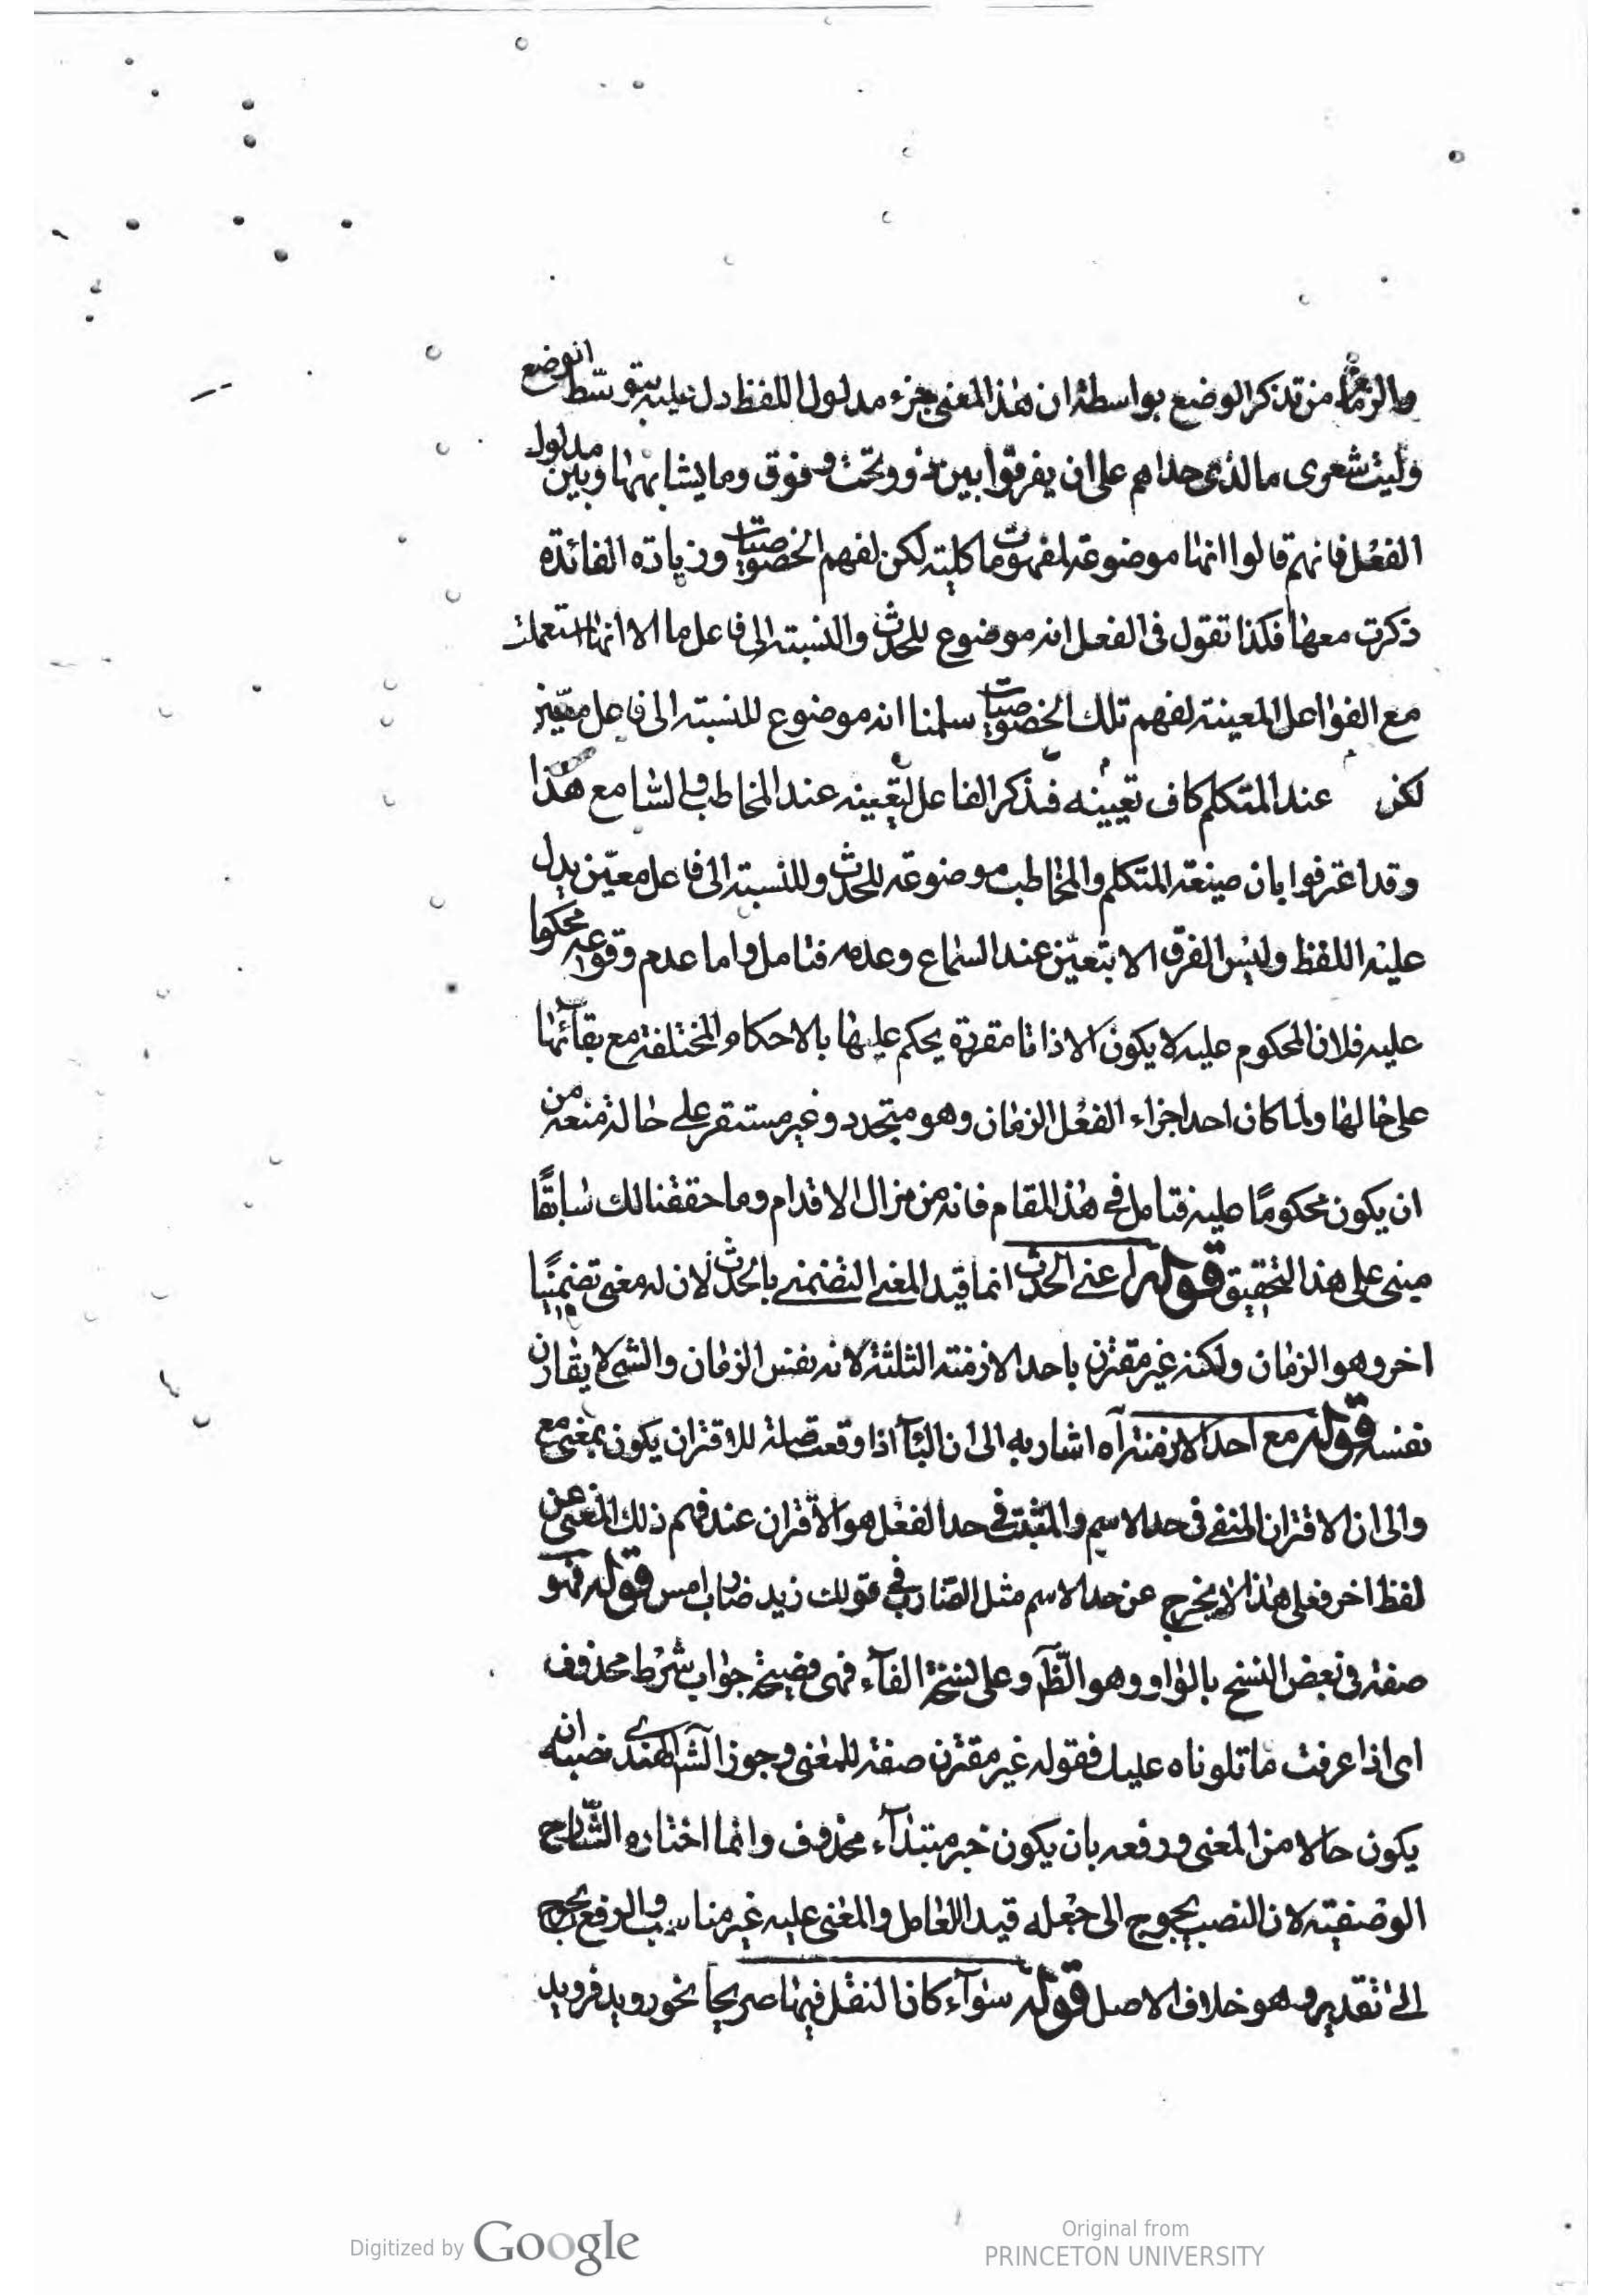 والزمان من تذكر الوضع بواسطة ان هذا المعنى جزء مدلول اللفظ دل عليه بتوسط الوضع
وليت شعرى ما الذى حداهم على ان يفرقوا بين ذو وتحت وفوق وما يشابهها وبين مدلول
الفعل فانهم قالوا انها موضوعة لمفهومات كلية لكن لفهم الخصوصيات وزيادة الفائدة
ذكرت معها فكذا تقول فى الفعل انه موضوع للحدث والنسبة الى فاعل ما الا انها استعملت
مع الفواعل المعينة لفهم تلك الخصوصيات سلمنا انه موضوع للنسبة الى فاعل معين
لكن عند المتكلم كاف تعيينه فذكر الفاعل لتعينه عند المخاطب والسامع هذا
وقد اعترفوا بان صيغة المتكلم والمخاطب موضوعة للحدث وللنسبة الى فاعل معين يدل
عليه اللفظ وليس الفرق الا بتعين عند السماع وعدمه فتامل واما عدم وقوعه محكوما
عليه فلان المحكوم عليه لا يكون الا ذاتا مقررة يحكم عليها بالاحكام المختلفة مع بقآئها
على حالها ولما كان احد اجزاء الفعل الزمان وهو متجدد وغير مستقر على حالة منعه من
ان يكون محكومًا عليه فتامل فى هذا المقام فانه من مزال الاقدام وما حققنا لك سابقًا
مبنى على هذا التحقيق قوله اعنى الحدث انما قيد المعنى التضمنى بالحدث لان له معنى تضمنيًا
اخر وهو الزمان ولكنه غير مقترن باحد الازمنة الثلثة لانه نفس الزمان والشئ لا يقارن
نفسه قوله مع احد الازمنة آه اشار به الى ان البآء اذا وقعت صلة للاقتران يكون بمعنى مع
والى ان الاقتران المنفى فى حد الاسم والمثبت فى حد الفعل هو الاقتران عند فهم ذلك المعنى عن
لفظ اخر فعلى هذا لا يخرج عن حد الاسم مثل الضارب فى قولك زيد ضارب امس قوله فهو
صفة فى بعض النسخ بالواو وهو الظّ آ وعلى نسخة الفآء فهى فصيحة جواب شرط محذوف
اى اذا عرفت ما تلوناه عليك فقوله غير مقترن صفة للمعنى وجوز الشآ الهندى نصبه ان
يكون حالا من المعنى ورفعه بان يكون خبر مبتدآء محذوف وانما اختاره الشارح
الوصفية لان النصب يحوج الى جعله قيد اللعامل والمعنى عليه غير مناسب والرفع يحوج
الى تقدير وهو خلاف الاصل قوله سوآء كان النقل فيها صريحا نحو رويد فرويد
Digitized by Google
Original from
PRINCETON UNIVERSITY